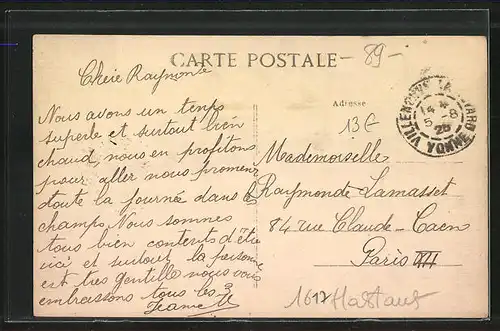 CARTE POSTALE
89-
Chère Raymonde
Adresse
13E
Nous avons un temps
superbe et surtout bien
chaud, nous en profitons
pour aller nous promener
toute la journée dans les
champs Nous sommes
tous bien contents d'être
ici et surtout la paysanne
est très gentille nous vous
embrassons tous les 3
Jeanne
Mademoiselle
Raymonde Lamasset
84 rue Claude-Caen
Paris
1617
VILLENEUVE-LA-GUYARD
14
5 -8
YONNE